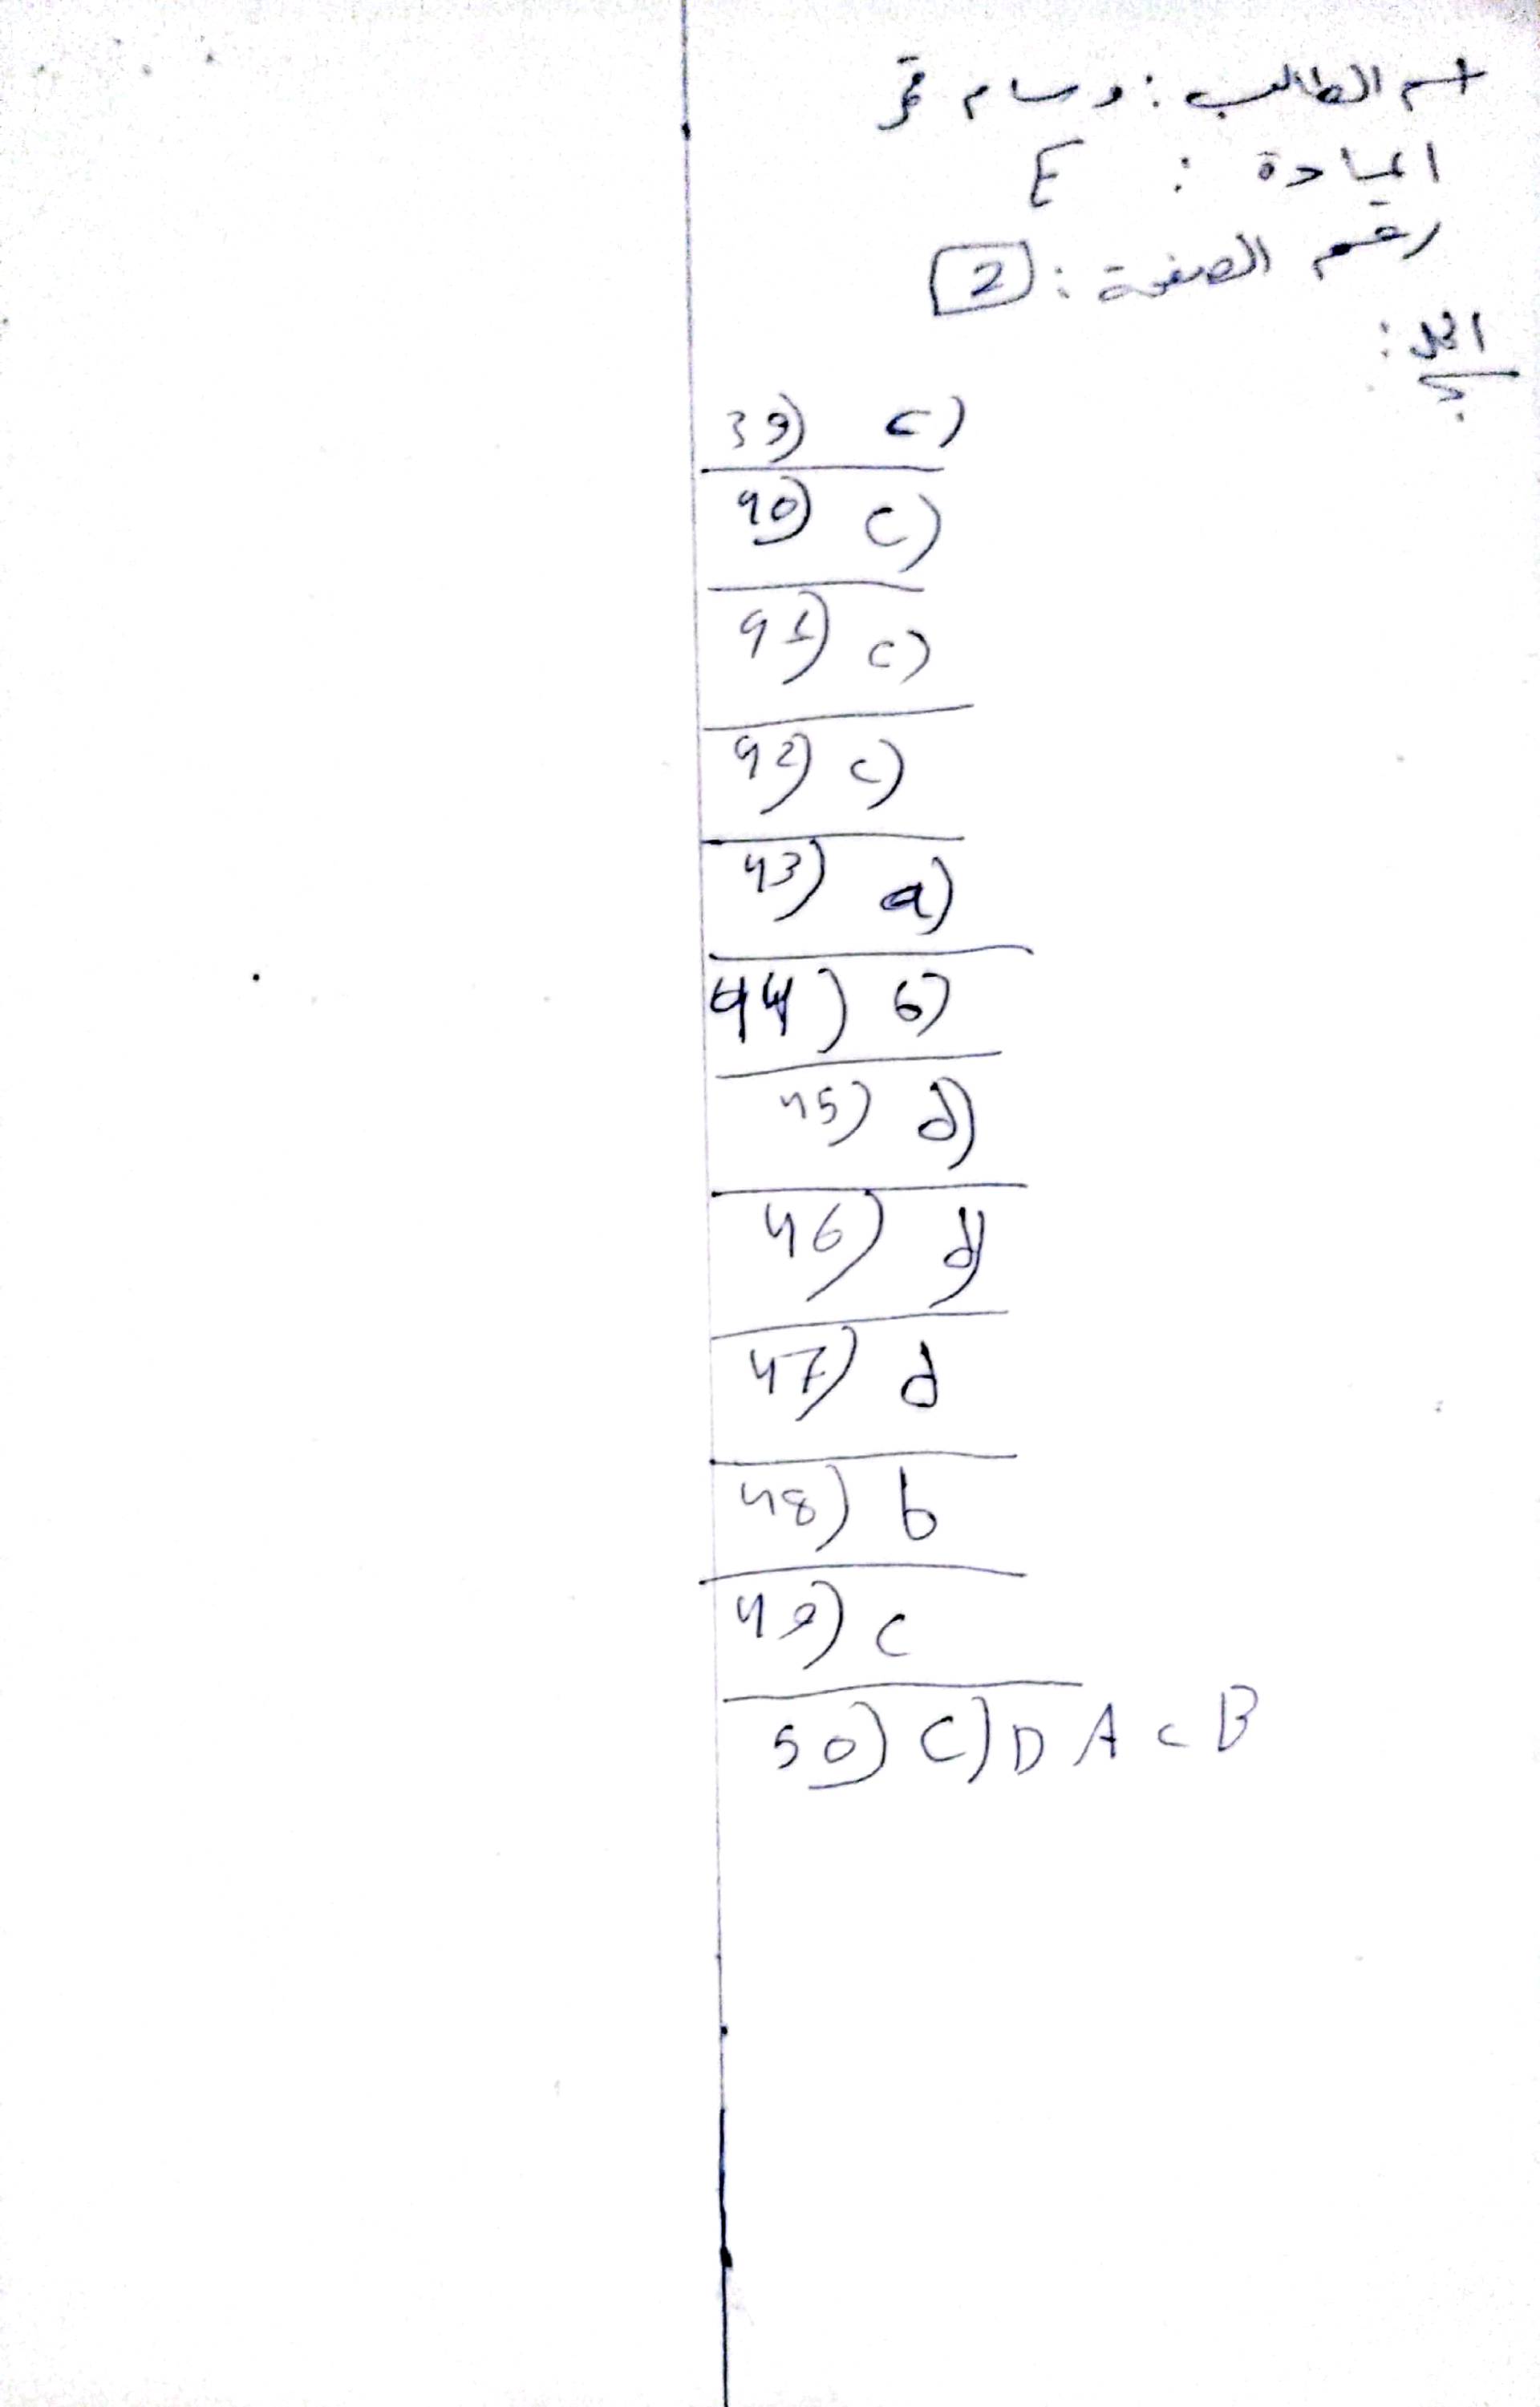 اسم الطالب : وسام قمر
المادة : E
رقم الصفحة : 2
الحل :
39) c)
40) c)
41) c)
42) c)
43) a)
44) b)
45) d)
46) d)
47) d
48) b
49) c
50) C) D A C B